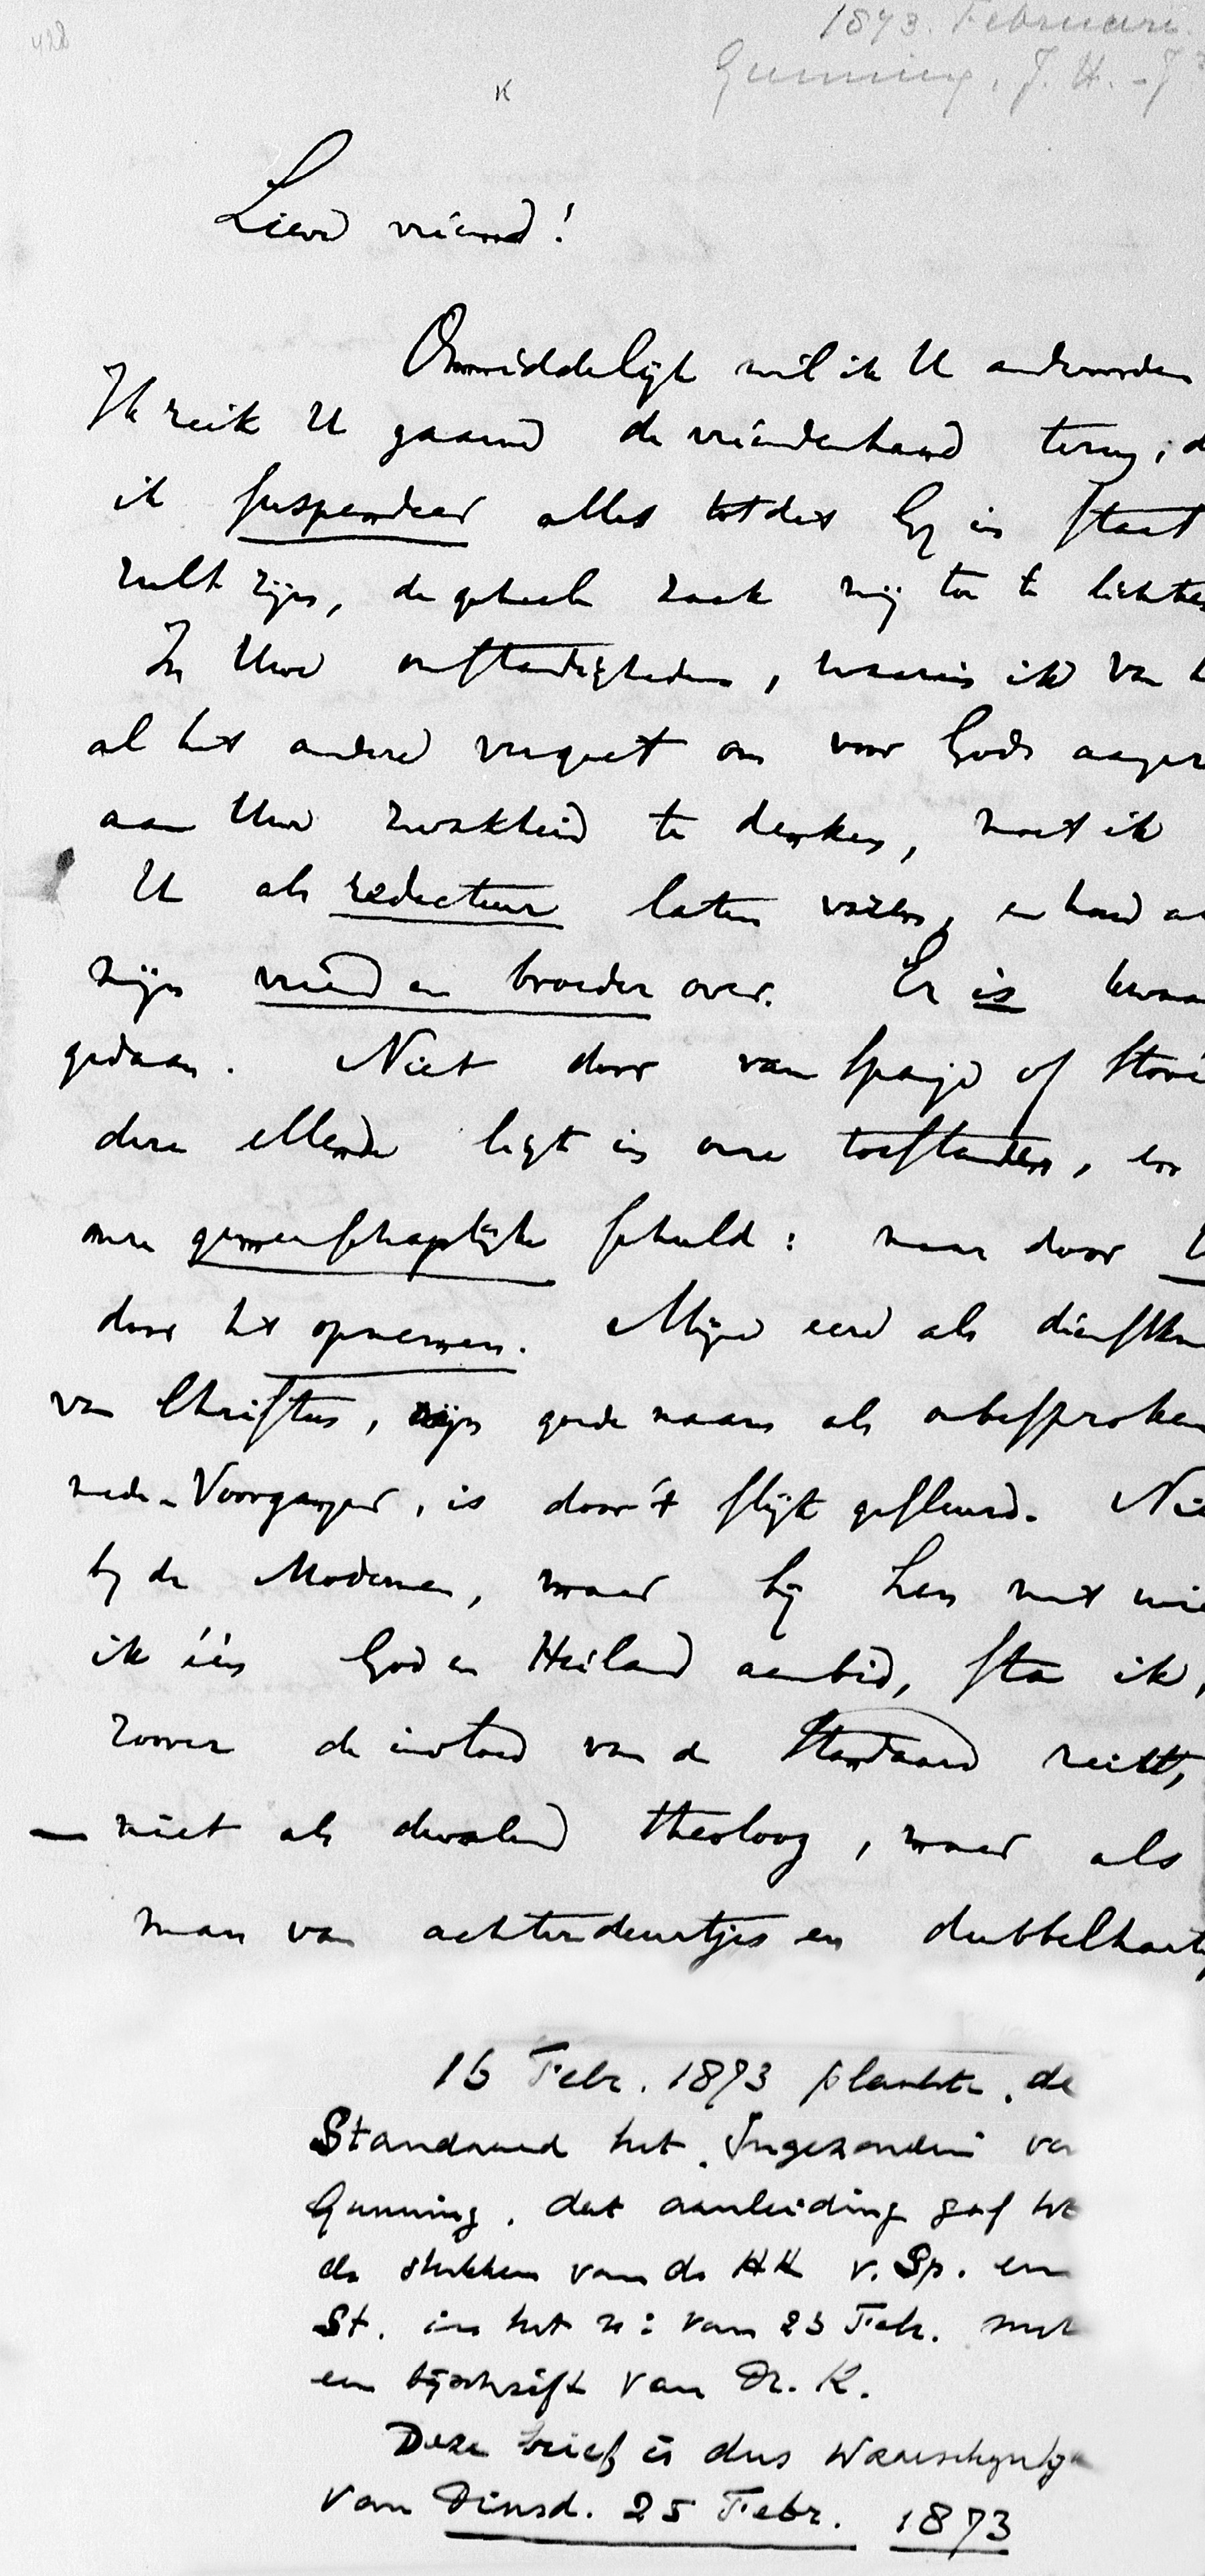 428
1873. Februari.
Gunning, J. H. - J
K
Lieve vriend!
Onmiddelijk wil ik U andwoorden
Ik reik U gaarne de vriendenhand terug, d
ik suspendeer alles totdat Gij in staat
zult zijn, de geheele zaak mij toe te lichten
In Uwe omstandigheden, waarin ik van
al het andere vergeet om voor Gods aange
aan Uwe zwakheid te denken, moet ik
U als redacteur laten varen, en houd a
mijn vriend en broeder over. Er is kwaa
gedaan. Niet door van Spanje of
dere ellende ligt in onze toestanden, en
onze gemeenschaplijke schuld: maar door U
door het opnemen. Mijne eere als dienstkn
van Christus, mijn goede naam als onbesproken
mede-Voorganger, is door 't slijk gesleurd. Nie
bij de Modernen, maar bij hen met wie
ik één God en Heiland aanbid, sta ik,
zoover de invloed van de Standaard reikt,
– niet als dwalend theoloog, maar als
man van achterdeurtjes en dubbelhartig
16 Febr. 1873 plaatste de
Standaard het Ingezonden va
Gunning, dat aanleiding gaf tot
de stukken van de HH v. Sp. en
St. in het n: van 23 Feb. met
een bijschrift van Dr. K.
Deze brief is dus waarschynlyk
van Dinsd. 25 Febr. 1873